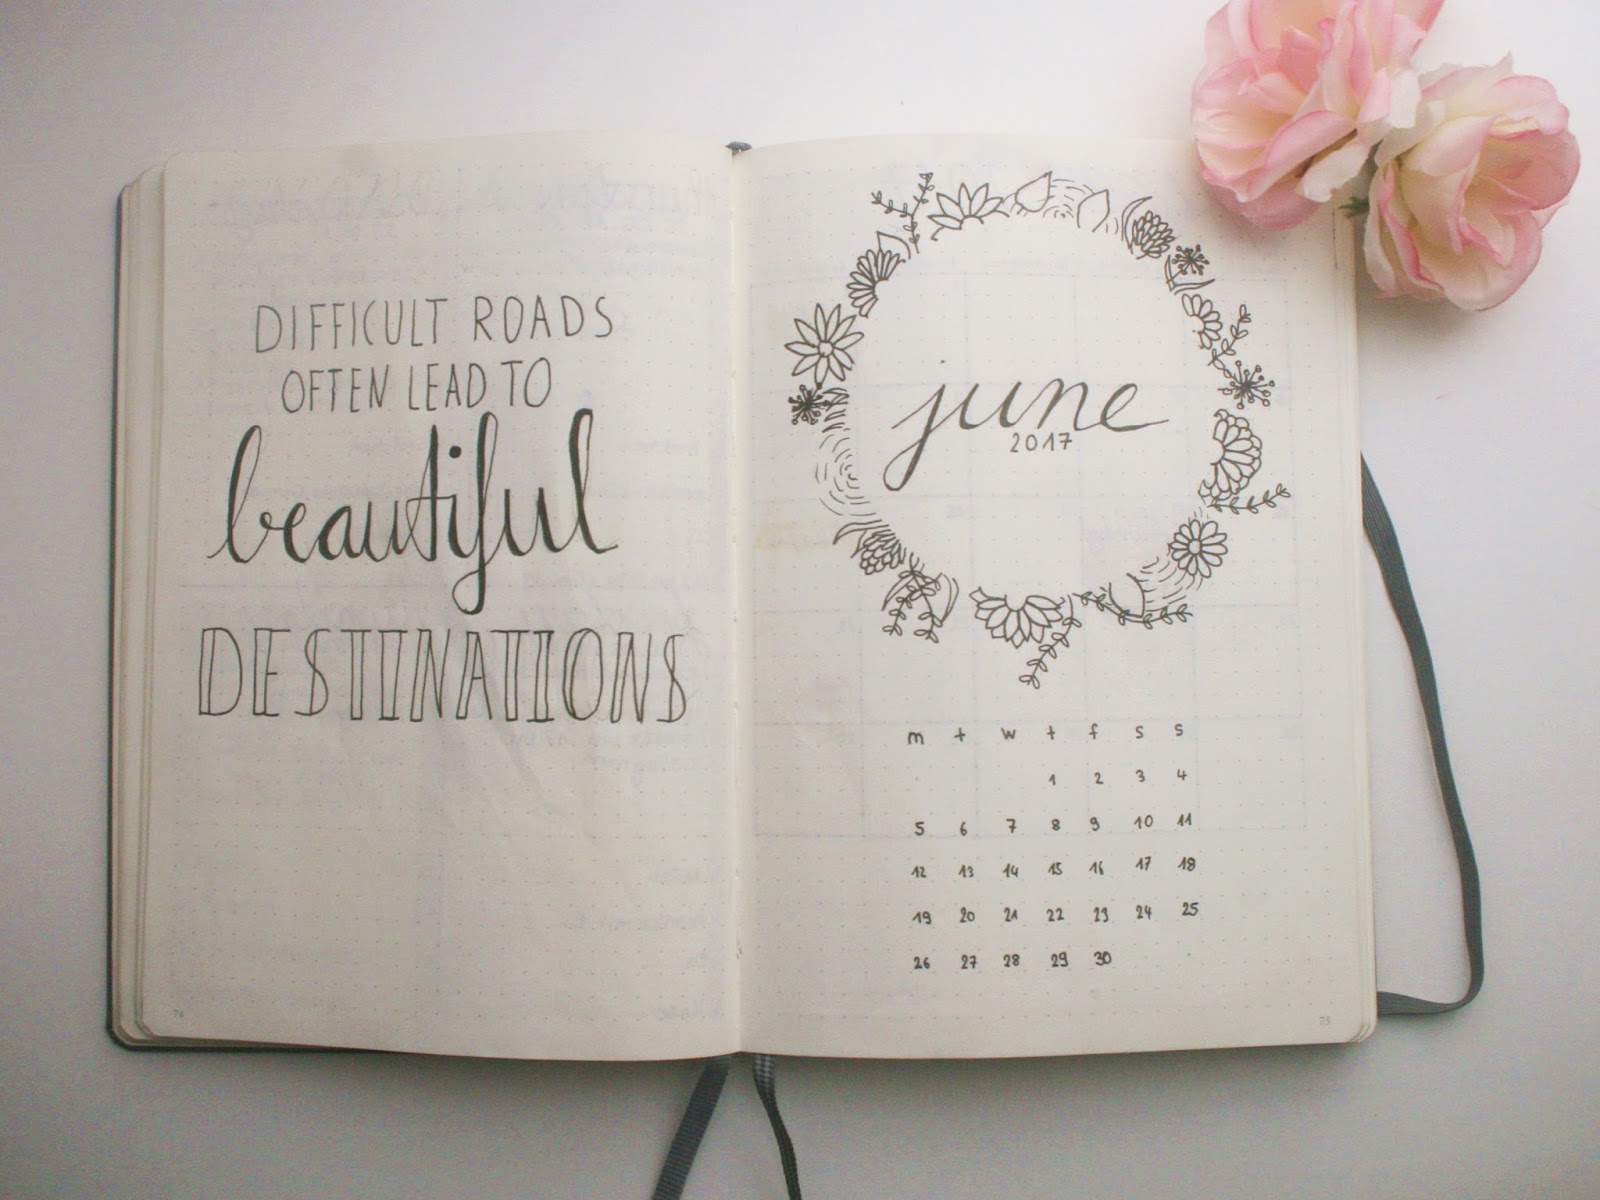 DIFFICULT ROADS
OFTEN LEAD TO
beautiful
DESTINATIONS
june
2017
m t w t f s s
1 2 3 4
5 6 7 8 9 10 11
12 13 14 15 16 17 18
19 20 21 22 23 24 25
26 27 28 29 30